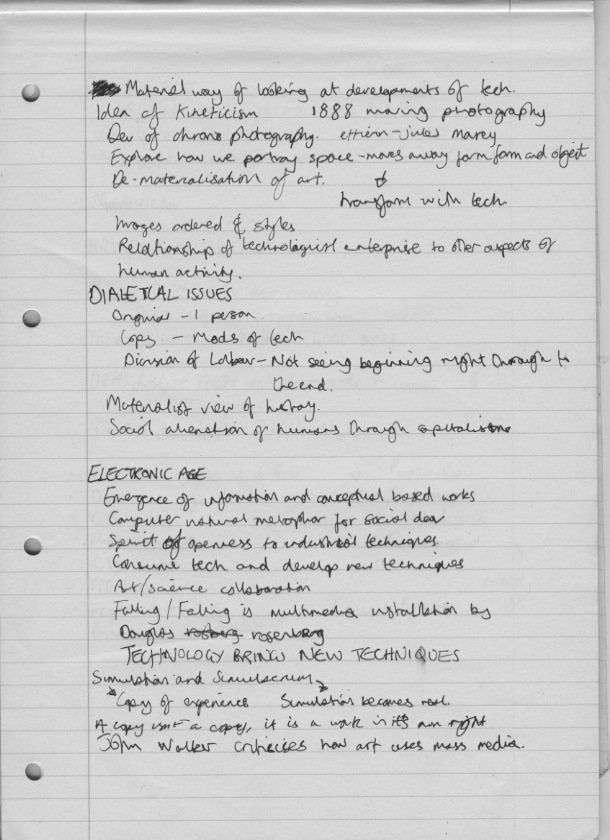 Material way of looking at developments of tech.
Idea of Kineticism 1888 moving photography
Dev of chronophotography. ettien-jules marey
Explore how we portray space - moves away form form and object
De-materialisation of art.
transform with tech.
Images ordered & styles
Relationship of technological enterprise to other aspects of
human activity.
DIALETCAL ISSUES
Original - 1 person
Copy - Mods of tech
Division of Labour - Not seeing beginning right through to
the end.
Materialist view of history.
Social alienation of humans through capitalism
ELECTRONIC AGE
Emergence of information and conceptual based works
Computer natural metaphor for social dev
Spirit of openness to industrial techniques.
Consume tech and develop new techniques
Art/science collaboration
Falling/Falling is multimedia installation by
Douglas rosberg rosenberg
TECHNOLOGY BRINGS NEW TECHNIQUES
Simulation and Simulacrum
Copy of experience Simulation becomes real.
A copy isnt a copy, it is a work in its own right
John Walker criticises how art uses mass media.